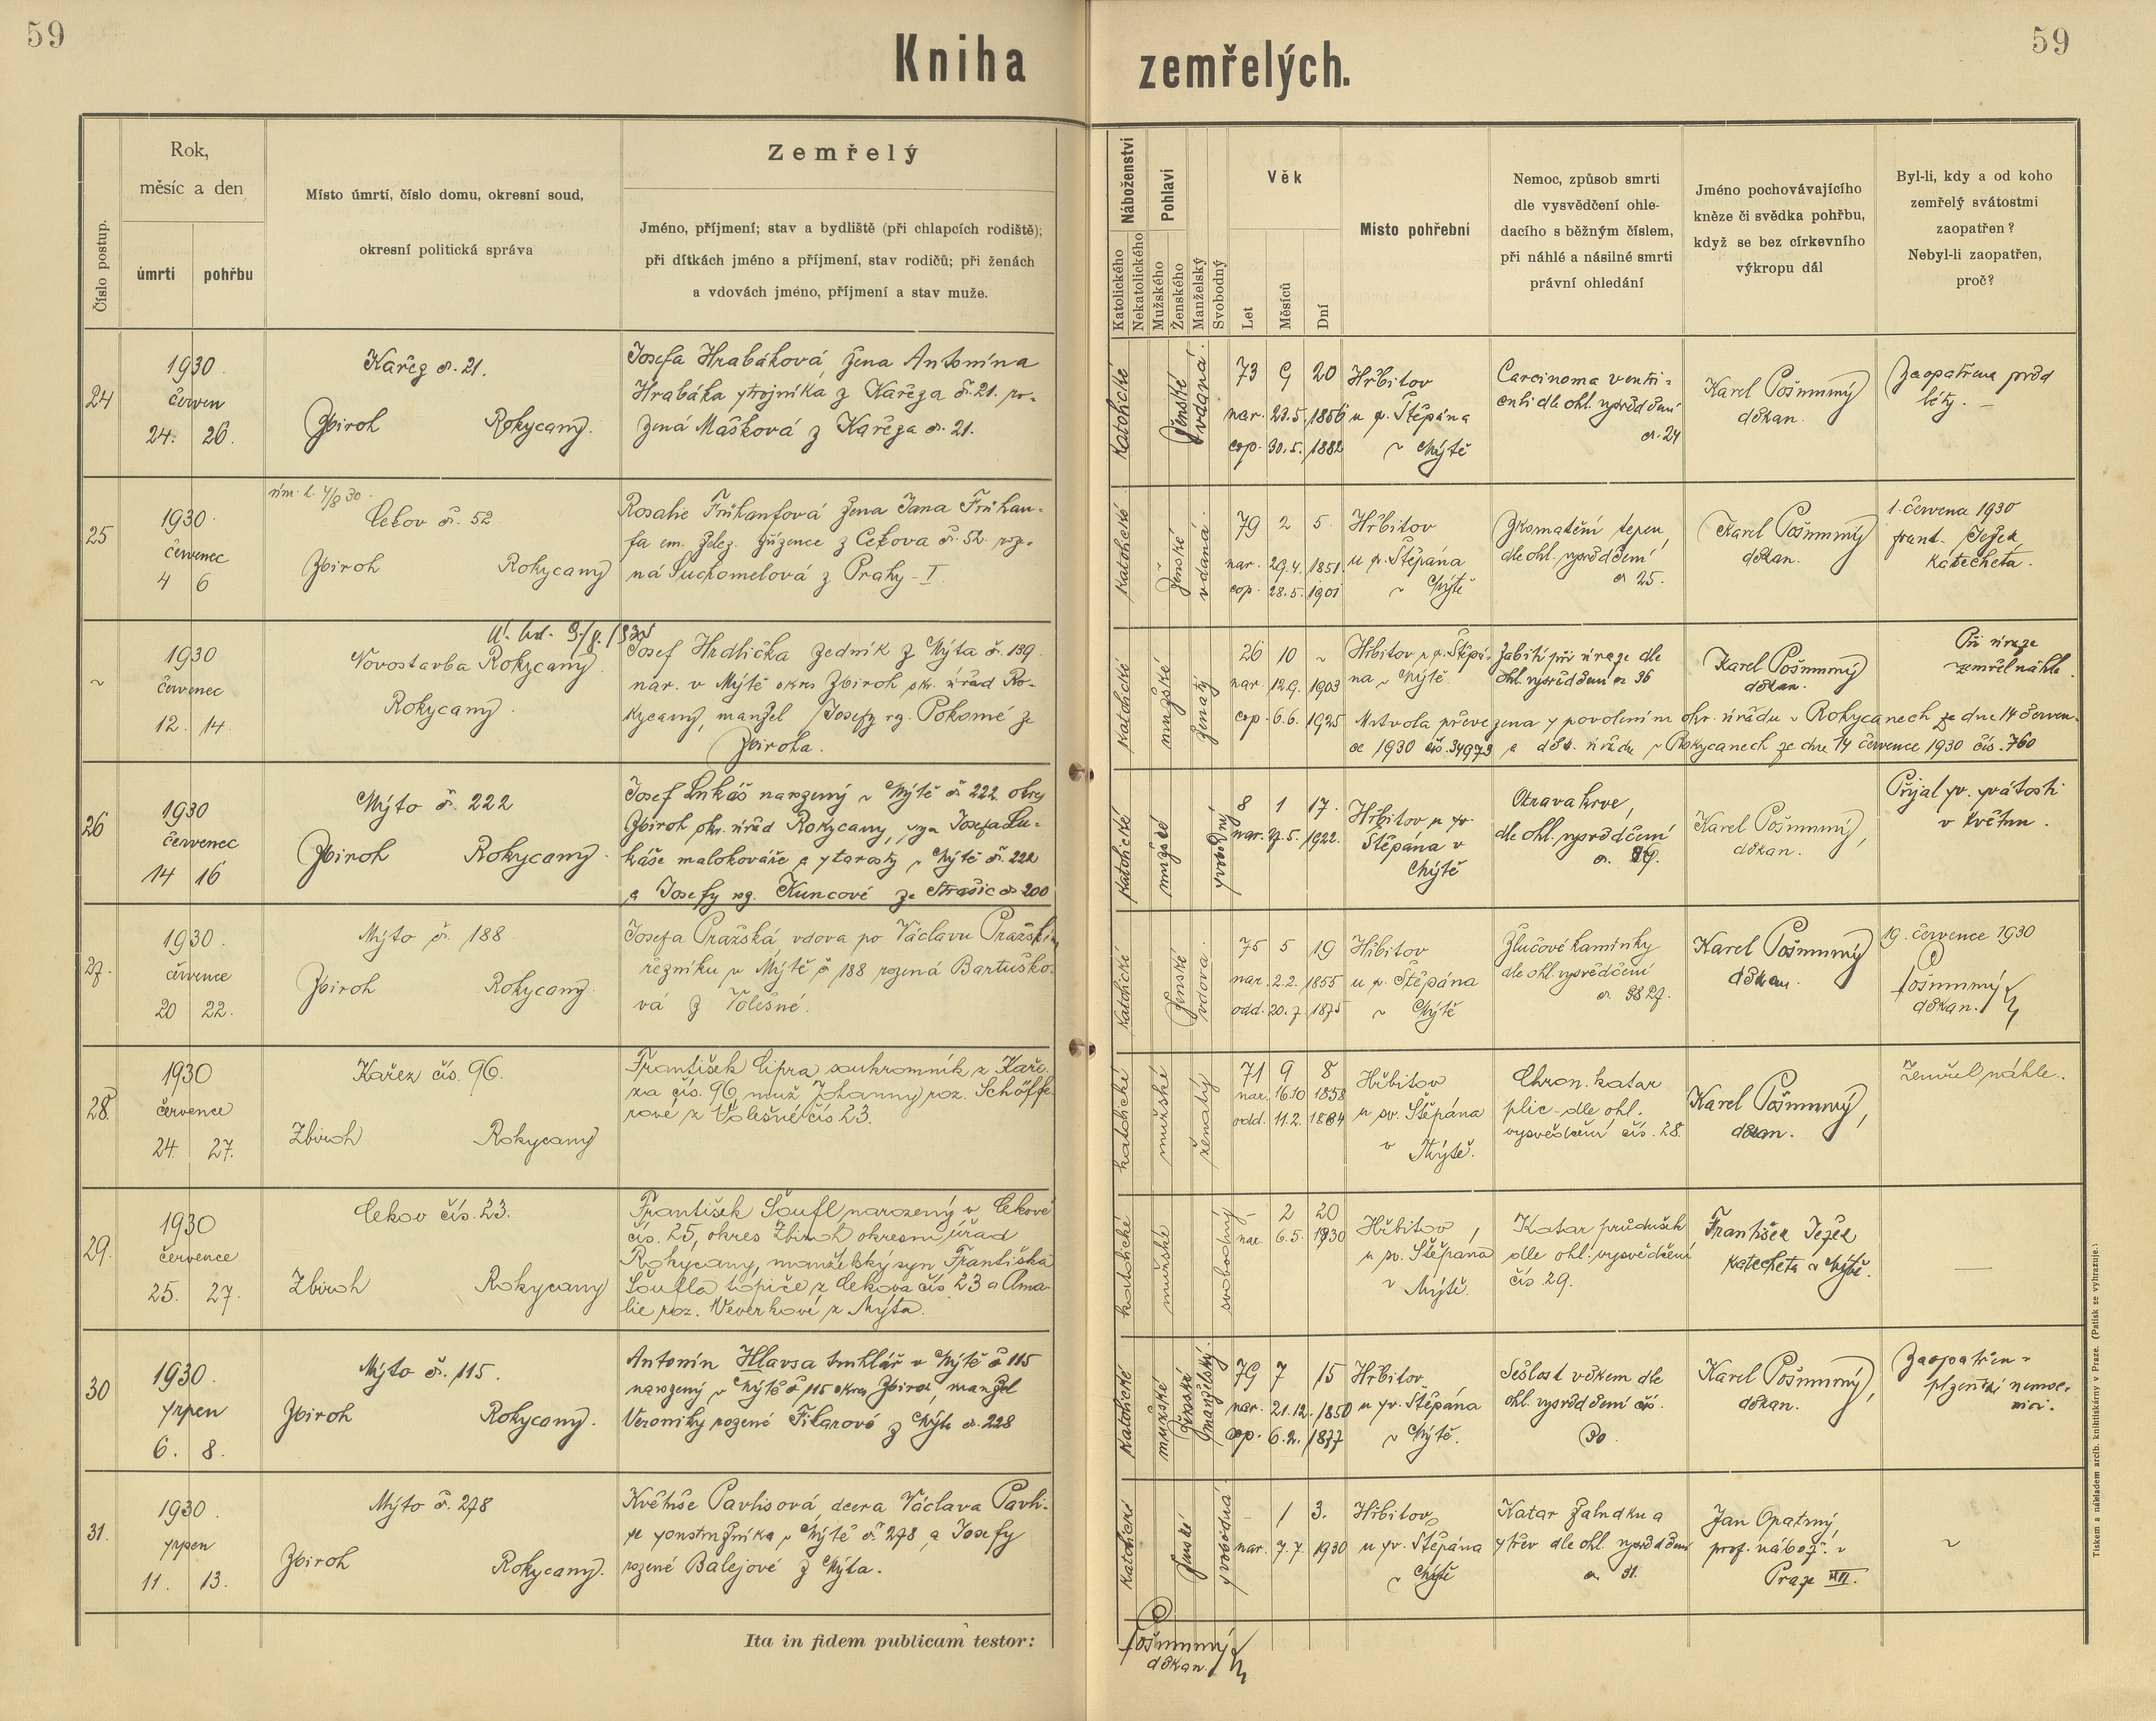 59
59
Kniha zemřelých.
Číslo postup.
Rok,
měsíc a den
úmrtí
pohřbu
Místo úmrtí, číslo domu, okresní soud,
okresní politická správa
Zemřelý
Jméno, příjmení; stav a bydliště (při chlapcích rodiště);
při dítkách jméno a příjmení, stav rodičů; při ženách
a vdovách jméno, příjmení a stav muže.
Náboženství
Katolického
Nekatolického
Pohlaví
Mužského
Ženského
Manželský
Svobodný
Věk
Let
Měsíců
Dní
Místo pohřební
Nemoc, způsob smrti
dle vysvědčení ohle-
dacího s běžným číslem,
při náhlé a násilné smrti
právní ohledání
Jméno pochovávajícího
kněze či svědka pohřbu,
když se bez církevního
výkropu dál
Byl-li, kdy a od koho
zemřelý svátostmi
zaopatřen?
Nebyl-li zaopatřen,
proč?
24
1930
červen
24. 26.
Kařez č. 21.
Zbiroh Rokycany.
Josefa Hrabáková, žena Antonína
Hrabáka strojníka z Kařeza č. 21. ro-
zená Mašková z Kařeza č. 21.
katolické
ženské
vdaná.
73 9 20
nar. 23.5. 1856
cop. 30.5. 1882
Hřbitov
u sv. Štěpána
v Mýtě
Carcinoma ventri-
culi dle ohl. vysvědčení
č. 24
Karel Pošmurný
děkan.
Zaopatřena před
léty. —
25
1930.
červenec
4 6
Cekov č. 52
Zbiroh Rokycany
Rosalie Frühaufová žena Jana Frühau-
fa em. želez. zřízence z Cekova č. 52. roze-
ná Suchomelová z Prahy - I.
katolické
ženské
vdaná.
79 2 5.
nar. 29.4. 1851
cop. 28.5. 1901
Hřbitov
u sv. Štěpána
v Mýtě
Zkornatění tepen,
dle ohl. vysvědčení
č 25.
Karel Pošmurný
děkan.
1. června 1930
Frant. Ježek,
katecheta.
1930
červenec
12. 14.
Novostavba Rokycany.
Rokycany.
Josef Hrdlička zedník z Mýta č. 139.
nar. v Mýtě okres Zbiroh ok. úřad Ro-
kycany, manžel Josefy rz. Pokorné ze
Zbiroha.
katolické
mužské
ženatý
26 10 ~
nar. 12.9. 1903
cop. 6.6. 1925
Hřbitov u sv. Štěpá-
na v Mýtě.
Zabití při úraze dle
ohl. vysvědčení č 36
Karel Pošmurný
děkan.
Při úraze
zemřel náhle.
Mrtvola převezena s povolením okr. úřadu v Rokycanech ze dne 14 červen-
ce 1930 čís. 34973 a děk. úřadu v Rokycanech ze dne 14 července 1930 čís. 760
26
1930
červenec
14 16
Mýto č. 222
Zbiroh Rokycany.
Josef Lukáš narozený v Mýtě č 222. okres
Zbiroh okr. úřad Rokycany, syn Josefa Lu-
káše malokováře a starosty v Mýtě č. 222
a Josefy rz. Kuncové ze Strašic č 200
katolické
mužské
svobodný
8 1 17.
nar. 27.5. 1922.
Hřbitov u sv.
Štěpána v
Mýtě
Otrava krve,
dle ohl. vysvědčení
Karel Pošmurný,
děkan.
Přijal sv. svátosti
v květnu.
27.
1930.
července
20 22.
Mýto č. 188
Zbiroh Rokycany.
Josefa Pražská, vdova po Václavu Pražském
řezníku v Mýtě č 188 rozená Bartuško-
vá z Volešné.
katolické
ženské
vdova.
75 5 19
nar. 2.2. 1855
odd. 20.7. 1875
Hřbitov
u sv. Štěpána
v Mýtě
Žlučové kamínky
dle ohl. vysvědčení
č. 27.
Karel Pošmurný
děkan.
19. července 1930
Pošmurný
děkan.
28.
1930
července
24. 27.
Kařez čís. 96.
Zbiroh Rokycany
František Cipra soukromník z Kaře-
za čís. 96, muž Johanny roz. Schöffe-
rové z Volešné čís 23.
katolické
mužské
ženatý
71 9 8
nar. 16.10 1858
odd. 11.2. 1884
Hřbitov
u sv. Štěpána
v
Mýtě.
Chron. katar
plic dle ohl.
vysvědčení čís. 28.
Karel Pošmurný,
děkan.
Zemřel náhle.
29.
1930
července
25. 27.
Cekov čís. 23.
Zbiroh Rokycany
František Šoufl narozený v Cekově
čís. 25, okres Zbiroh okresní úřad
Rokycany, manželský syn Františka
Šoufla topiče z Cekova čís 23 a Ama-
lie roz. Veverkové z Mýta.
katolické
mužské
svobodný
- 2 20
nar. 6.5. 1930
Hřbitov,
u sv. Štěpána
v Mýtě.
Katar průdušek
dle ohl. vysvědčení
čís 29.
František Ježek
katecheta v Mýtě.
—
30
1930.
srpen
6. 8.
Mýto č. 115.
Zbiroh Rokycany.
Antonín Hlavsa truhlář v Mýtě č 115
narozený v Mýtě č 115 okres Zbiroh, manžel
Veroniky rozené Fikarové z Mýta č. 228
katolické
mužské
ženské
manželský.
79 7 15
nar. 21.12. 1850
cop. 6.2. 1877
Hřbitov
u sv. Štěpána
v Mýtě.
Sešlost věkem dle
ohl. vysvědčení čís.
30.
Karel Pošmurný,
děkan.
Zaopatřen v
plzeňské nemoc-
nici.
31.
1930.
srpen
11. 13.
Mýto č. 278
Zbiroh Rokycany.
Květuše Pavlisová, dcera Václava Pavli-
se v Mýtě č. 278 a Josefy
rozené Balejové z Mýta.
katolické
ženské
svobodná
- 1 3.
nar. 7.7. 1930
Hřbitov
u sv. Štěpána
v Mýtě
Katar žaludku a
střev dle ohl. vysvědčení
č. 31.
Jan Opatrný,
prof. nábož. v
Praze
~
Ita in fidem publicam testor:
Pošmurný
děkan.
Tiskem a nákladem arcib. knihtiskárny v Praze. (Patisk se vyhrazuje.)